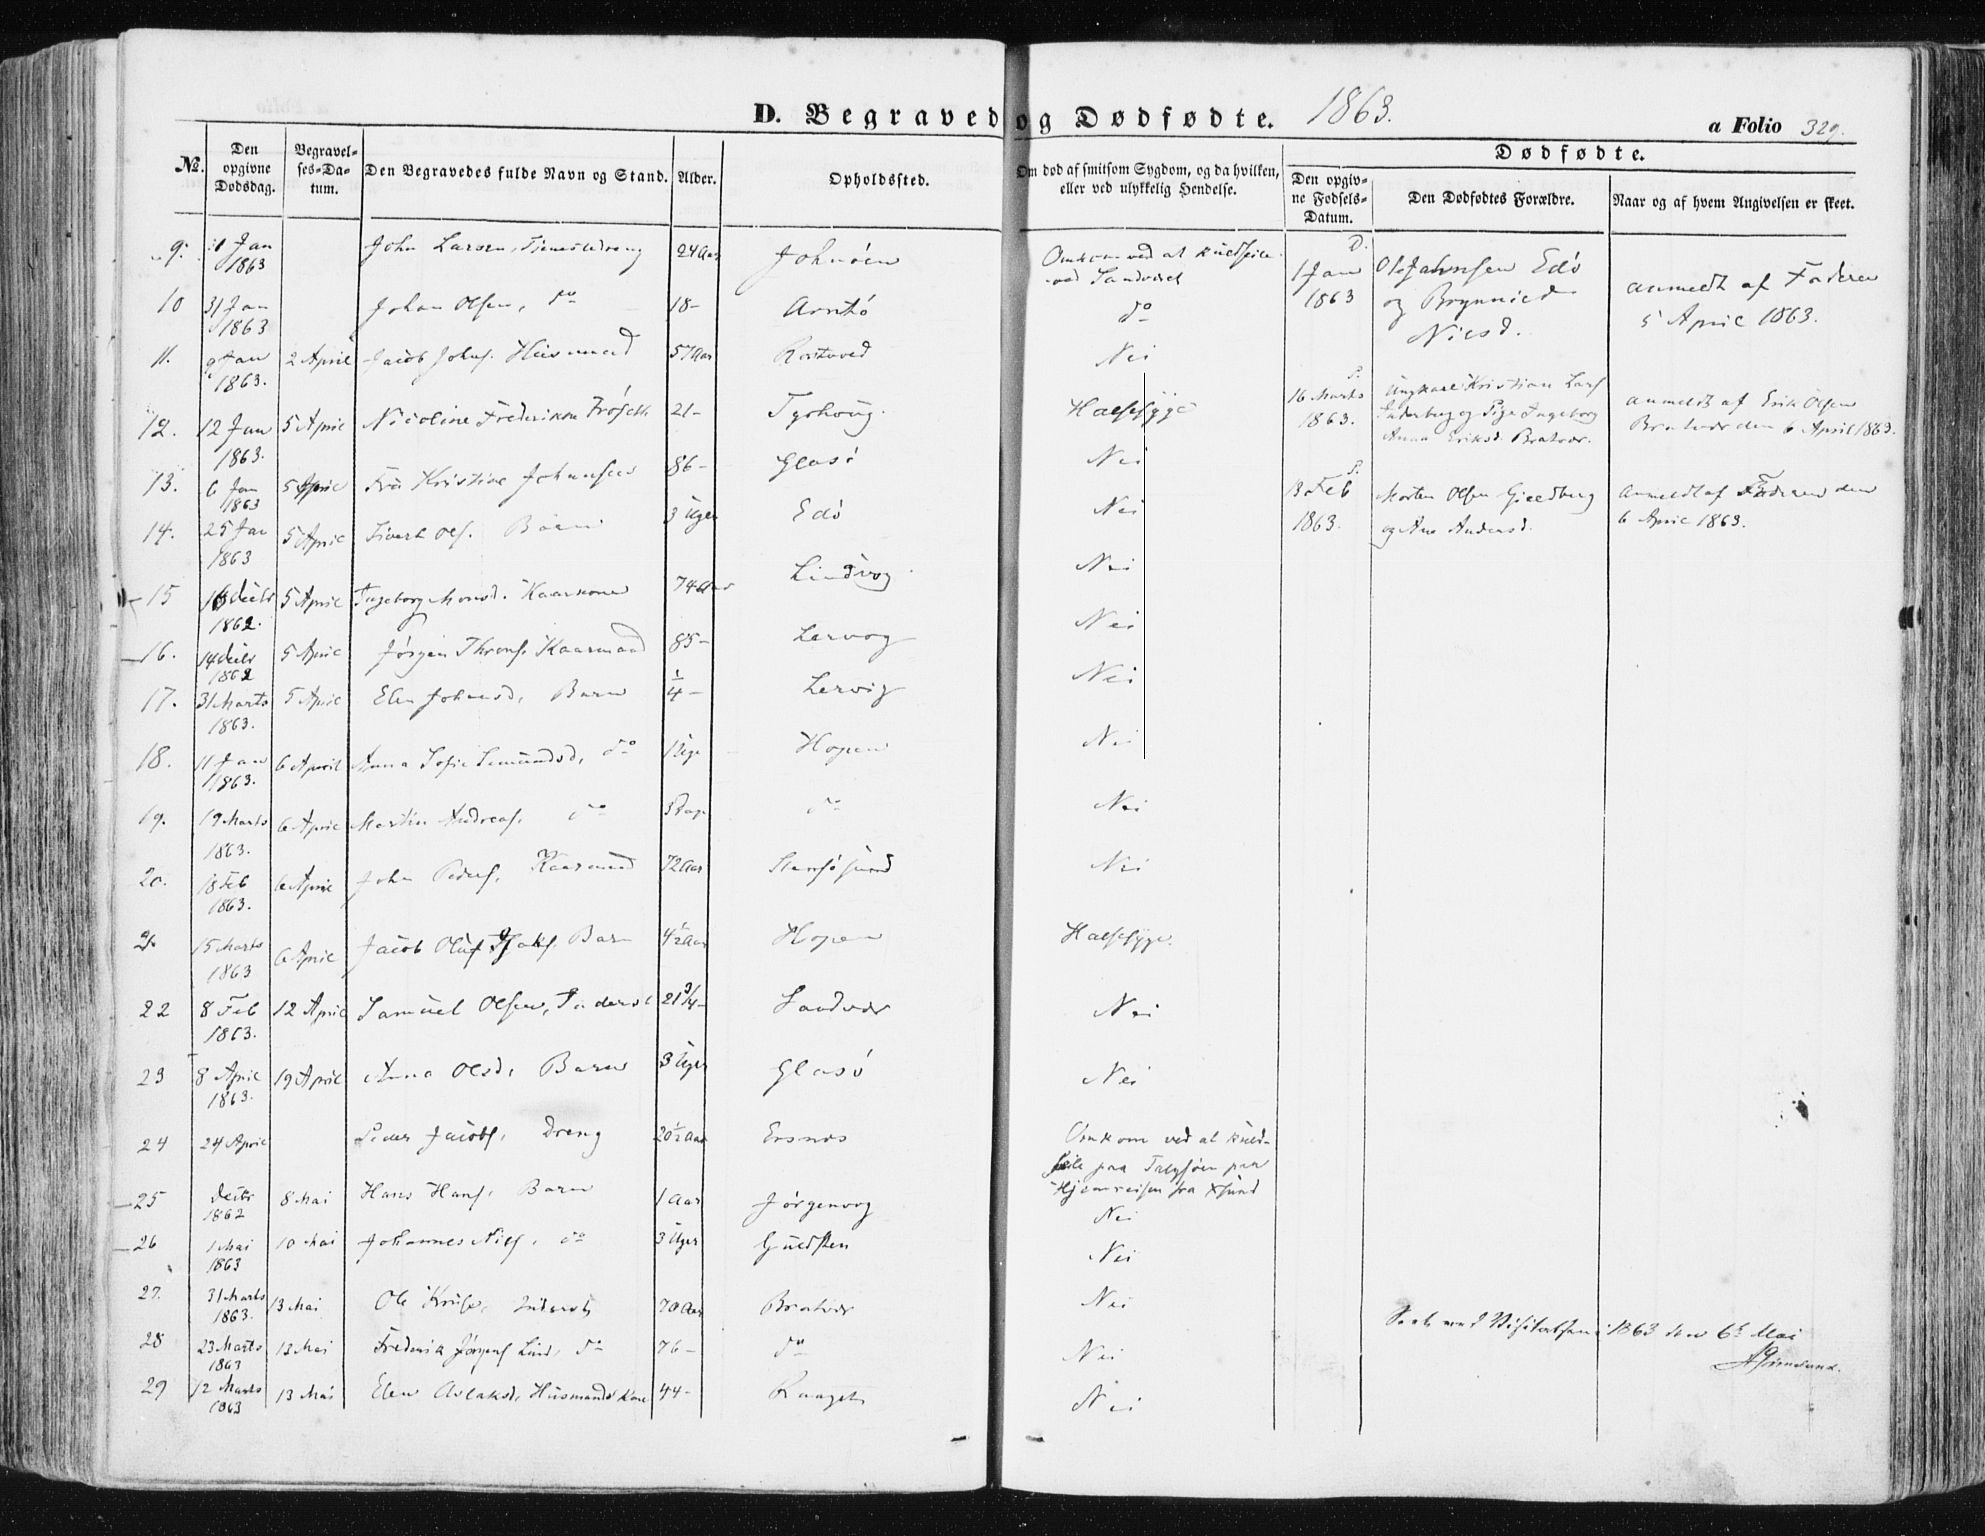 D. Begravede og Dødfødte. 1863.
a Folio 329.
No.
Den opgivne Dødsdag.
Begravelses-Datum.
Den Begravedes fulde Navn og Stand.
Alder.
Opholdssted.
Om død af smitsom Sygdom, og da hvilken, eller ved ulykkelig Hendelse.
Dødfødte.
Den opgivne Fødsels-Datum.
Den Dødfødtes Forældre.
Naar og af hvem Angivelsen er skeet.
9. 31 Jan 1863 John Larsen, Tjenestedreng 24 Aar Johnöen Omkom ved at kuldseile ved Sandværet
10 31 Jan 1863 Johan Olsen, do 18- Arntö do
11. Jan 1863. 2 April Jacob Johns. Husmand 57 Aar Rostaved Nei
12. 12 Jan 1863. 5 April Nicoline Frederikke 21- Tyshoug. Halsesyge
13. 6 Jan 1863 5 April Fru Kristine Johnsen 86- Glasö Nei
14. 25 Jan 1863 5 April Sivert Ols. Barn 3 Uger Edö Nei
15 16 Decbr 1862. 5 April Ingeborg Monsd. Kaarkone 74 Aar Lindvog Nei
16. 14 Decbr 1862 5 April Jørgen Throns. Kaarmand 85- Lervog Nei
17. 31 Marts 1863. 5 April Elen Johnsd, Barn 1/4- Lervig Nei
18. 11 Jan 1863. 6 April Anna Sofie Simundsd, do 1 Uge Hopen Nei
19. 19 Marts 1863. 6 April Martin Andreas. do 5 Dage do Nei
20. 18 Feb 1863. 6 April John Peders. Kaarmand 72 Aar Nei
21. 15 Marts 1863 6 April Jacob Oluf Barn 4½ Aar Hopen Halsesyge.
22 8 Feb 1863. 12 April Samuel Olsen, Inderst 21 3/4- Sandvær Nei
23 8 April 1863. 19 April Anna Olsd, Barn 3 Uger Glasö Nei
24 24 April Peder Jacobs. Dreng 20½ Aar Ersnes Omkom ved at kuldseile paa paa Hjemreisen fra Xsund
25 Decbr 1862 8 Mai Hans Hans. Barn 1 Aar Jørgenvog Nei
26 1 Mai 1863 10 Mai Johannes Nils. do 3 Uger Guldsten Nei
27. 31 Marts 1863. 13 Mai Ole Kruse, Inderst 70 Aar Bratvær Nei
28 23 Marts 1863 13 Mai Frederik Jörgens Lind, do 76- do Nei
29 12 Marts 1863 13 Mai Elen Aslaksd, Husmands Kone 44- Nei
D.
1 Jan 1863 Ole Johnsen Edö og Brynnild Nilsd. anmeldt af Faderen 5 April 1863.
16 Marts 1863. Ungkarl Kristian Lars og Pige Ingeborg Anna Eriksd. Bratvær. anmeldt af Erik Olsen Bratvær den 6 April 1863.
13 Feb 1863. Morten Olsen Gjeldberg og Ane Andersd. anmeldt af Faderen den 6 April 1863.
Seet ved Visitatsen 1863 den 6te Mai